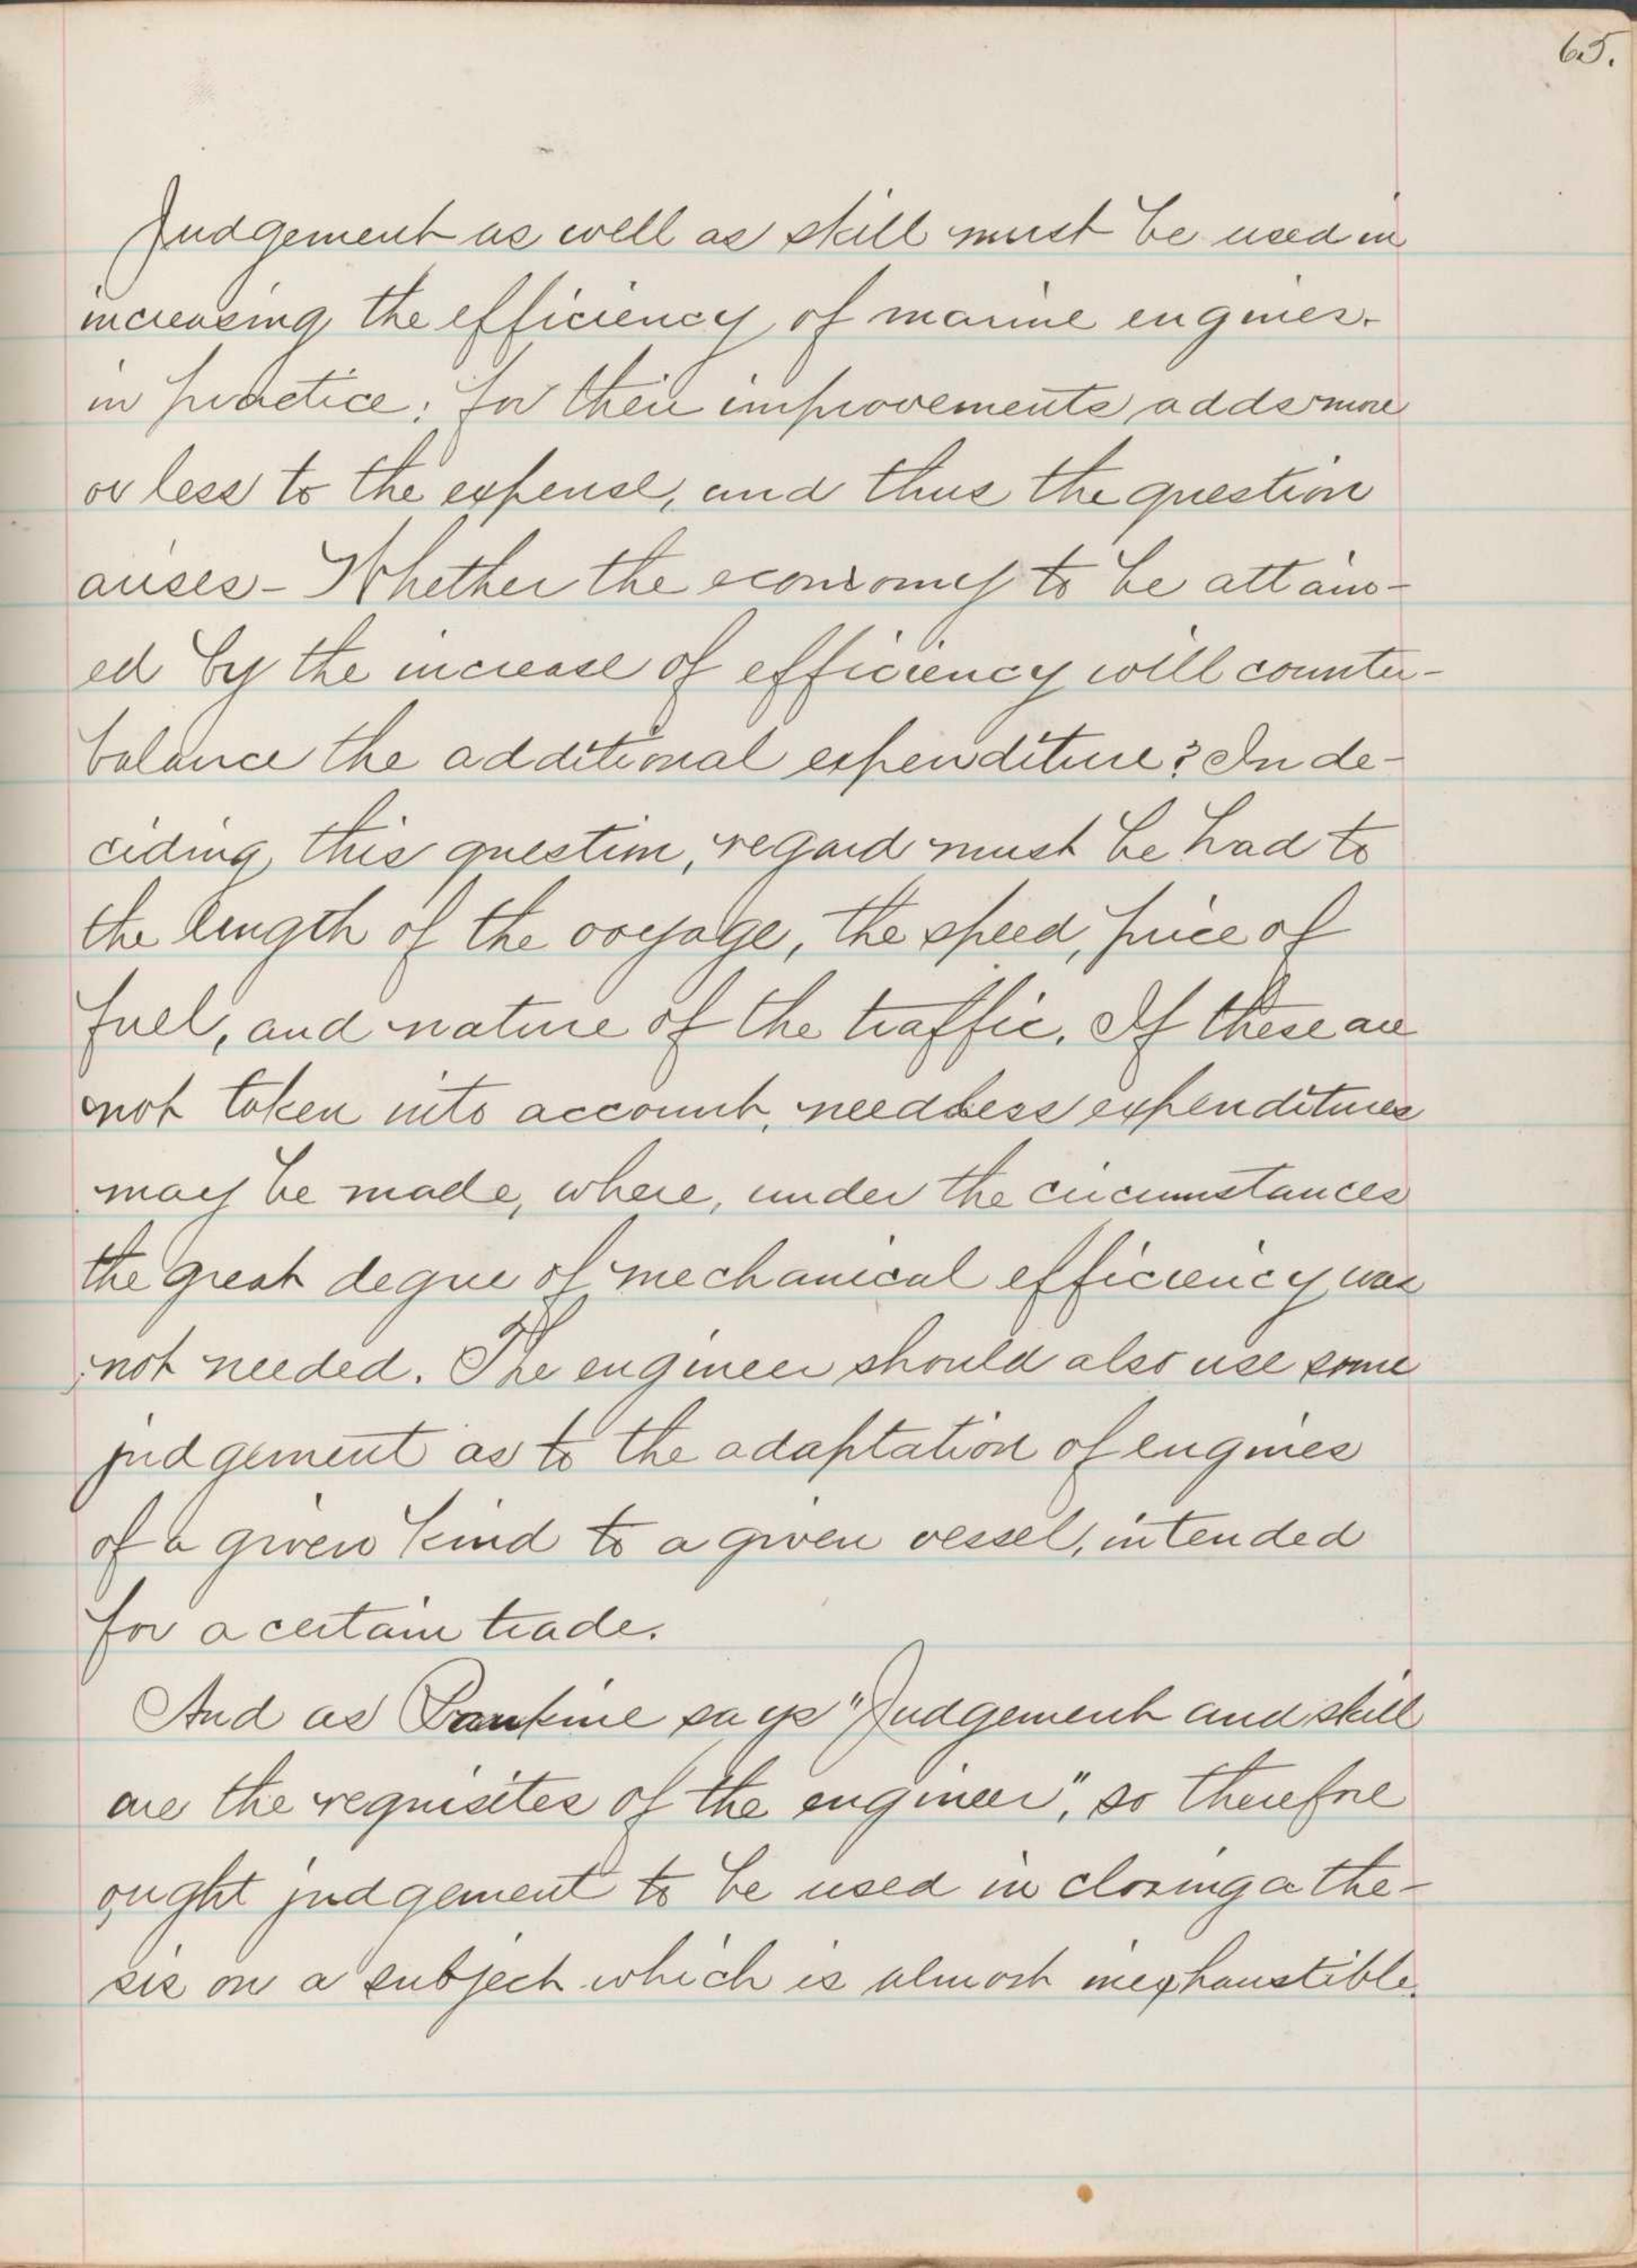 65.
Judgement as well as skill must be used in
increasing the efficiency of marine engines.
in practice; for their improvements adds more
or less to the expense, and thus the question
arises - Whether the economy to be attain-
ed by the increase of efficiency will counter-
balance the additional expenditure? In de-
ciding this question, regard must be had to
the length of the voyage, the speed, price of
fuel, and nature of the traffic. If these are
not taken into account, needless expenditures
may be made, where, under the circumstances
the great degree of mechanical efficiency was
not needed. The engineer should also use some
judgement as to the adaptation of engines
of a given kind to a given vessel, intended
for a certain trade.
And as Rankine says "Judgement and skill
are the requisites of the engineer", so therefore
ought judgement to be used in closing a the-
sis on a subject which is almost inexhaustible.